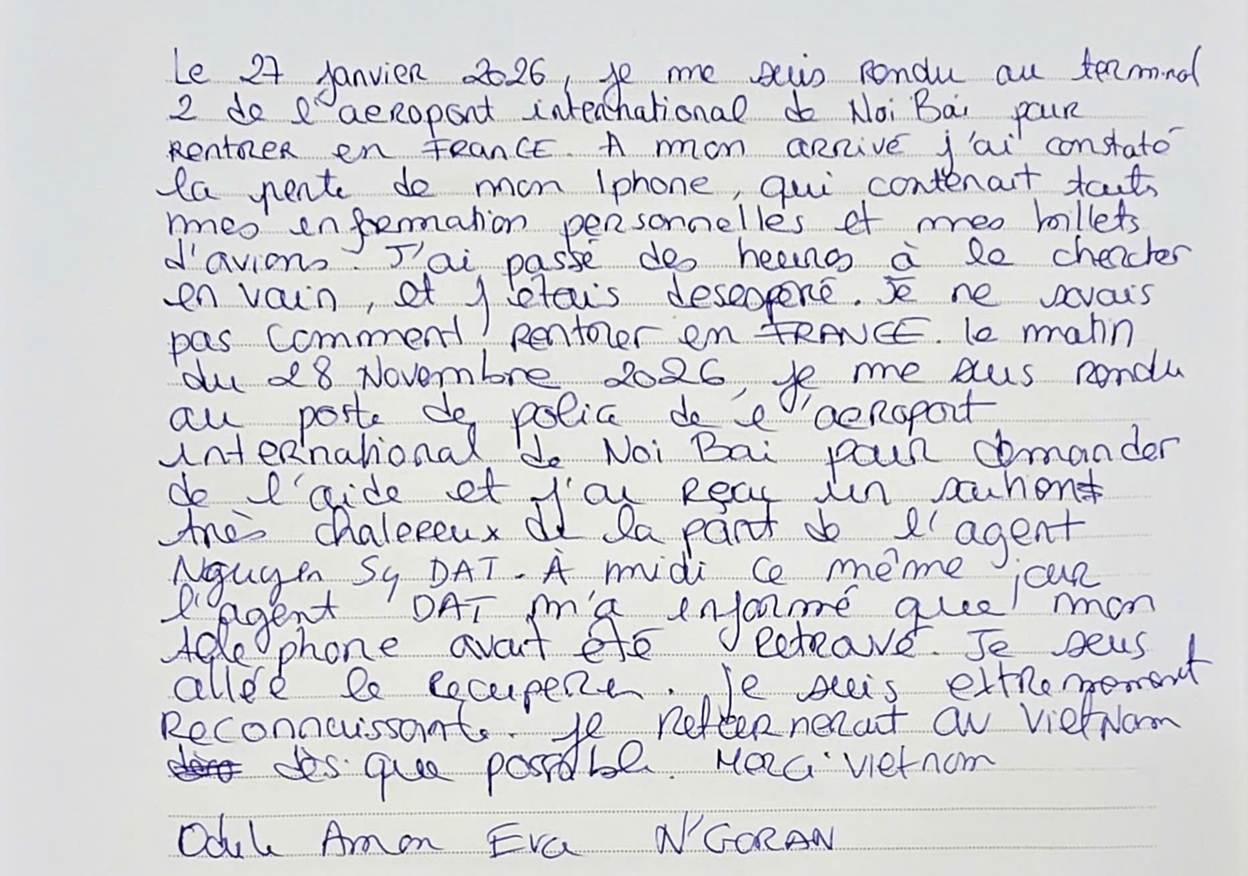 Le 27 janvier 2026, je me suis rendu au terminal
2 de l'aeroport international de Noi Bai pour
Rentrer en FRANCE. A mon arrivé j'ai constaté
la perte de mon Iphone, qui contenait touts
mes information personnelles et mes billets
d'avions. J'ai passé des heures à le chercher
en vain, et j'étais desesperé. Je ne savais
pas comment rentrer en FRANCE. le matin
du 28 Novembre 2026, je me suis rendu
au poste de police de l'aeroport
international de Noi Bai pour demander
de l'aide et j'ai Reçu un
très chalereux de la part de l'agent
Nguyen Sy DAT. À midi ce même jour
l'agent DAT m'a informé que mon
téléphone avait été Retravé. Je suis
allée le recuperer. Je suis extremement
Reconnaissante. je au VietNam
dès que possible. Merci vietnam
Amon Eva N'GORAN